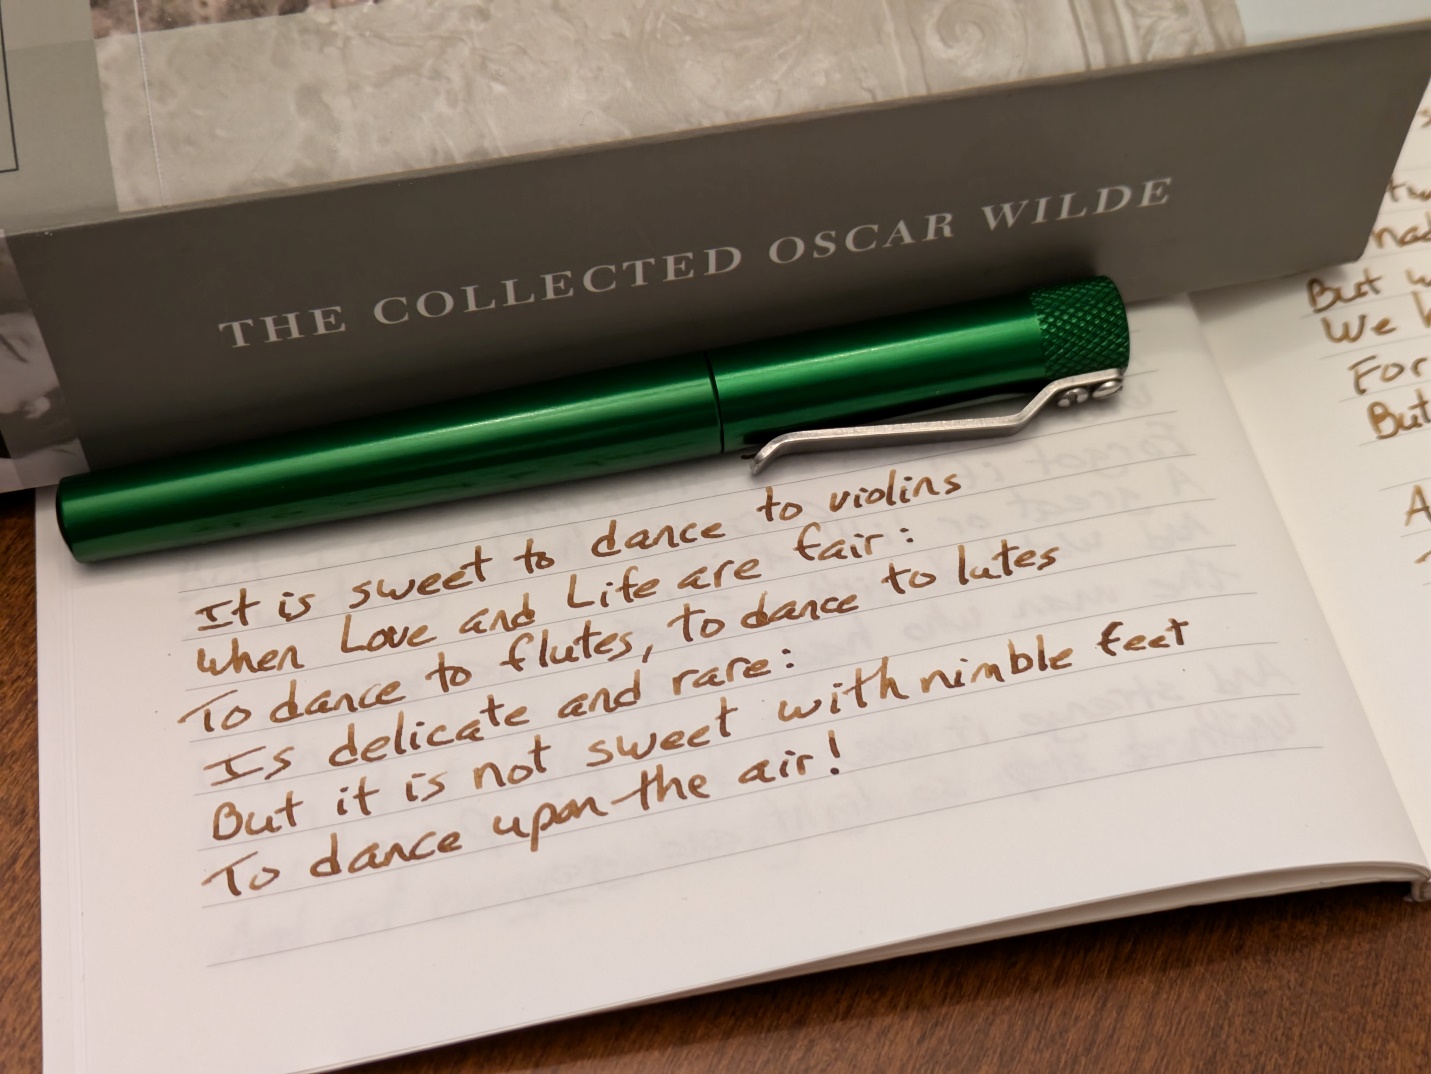 THE COLLECTED OSCAR WILDE
It is sweet to dance to violins
when Love and Life are fair:
To dance to flutes, to dance to lutes
Is delicate and rare:
But it is not sweet with nimble feet
To dance upon the air!
But
We
For
But